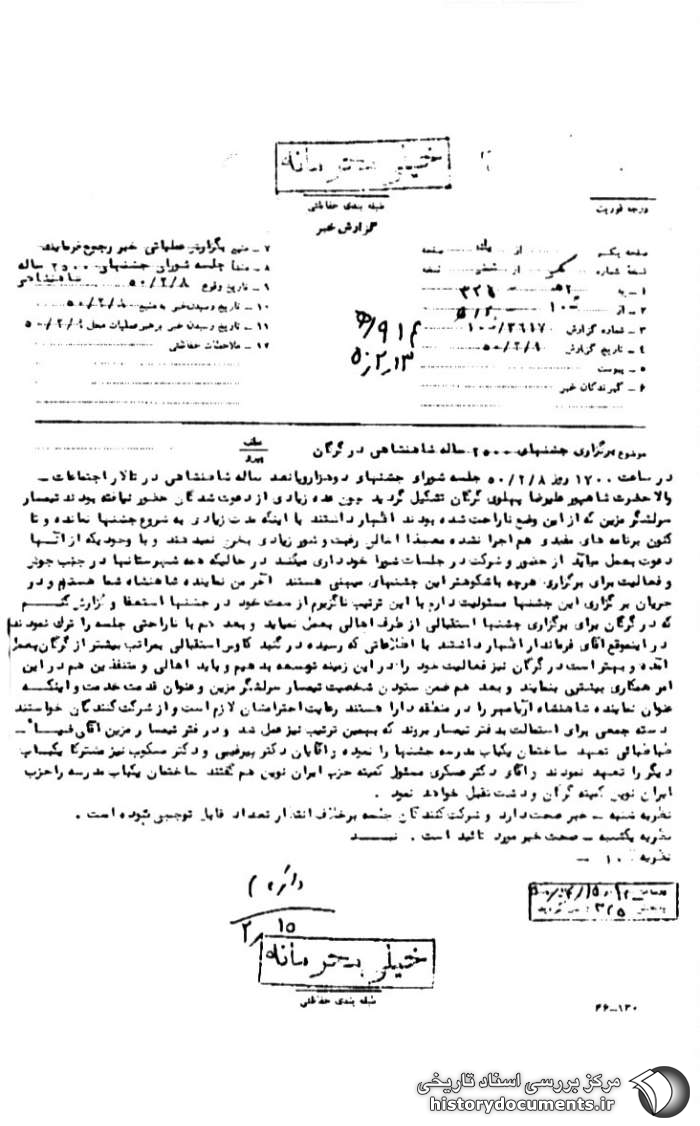 خیلی محرمانه
طبقه بندی حفاظتی
گزارش خبر
درجه فوریت
صفحه یکم از یک صفحه
نسخه شماره یکم از شش نسخه
۱ ـ به ۲ه ۳۲۶
۲ ـ از ۱۰ه
۳ ـ شماره گزارش ۱۰ه/۳۶۱۷
۴ ـ تاریخ گزارش ۵۰/۲/۹
۵ ـ پیوست
۶ ـ گیرندگان خبر
۷ ـ منبع بگزارش عملیاتی خبر رجوع فرمایند
۸ ـ منشأ جلسه شورای جشنهای ۲۵۰۰ ساله شاهنشاهی
۹ ـ تاریخ وقوع ۵۰/۲/۸
۱۰ ـ تاریخ رسیدن خبر به منبع ۵۰/۲/۸
۱۱ ـ تاریخ رسیدن خبر برهبر عملیات محل ۵۰/۲/۹
۱۲ ـ ملاحظات حفاظتی
۵۰،۲،۱۳
موضوع برگزاری جشنهای ۲۵۰۰ ساله شاهنشاهی در گرگان
در ساعت ۱۷۰۰ روز ۵۰/۲/۸ جلسه شورای جشنهای دوهزاروپانصد ساله شاهنشاهی در تالار اجتماعات ـ
والاحضرت شاهپور علیرضا پهلوی گرگان تشکیل گردید چون عده زیادی از دعوت شدگان حضور نیافته بودند تیمسار
سرلشگر مزین که از این وضع ناراحت شده بودند اظهار داشتند با اینکه مدت زیادی به شروع جشنها نمانده و تا
کنون برنامه های مفیدی هم اجرا نشده معهذا اهالی رغبت و شور زیادی بخرج نمیدهند و با وجودیکه از آنها
دعوت بعمل میآید از حضور و شرکت در جلسات شورا خودداری میکنند در حالیکه همه شهرستانها در جنب جوش
و فعالیت برای برگزاری هرچه باشکوهتر این جشنهای میهنی هستند آخر من نماینده شاهنشاه شما هستم و در
جریان برگزاری این جشنها مسئولیت دارم با این ترتیب ناگزیرم از سمت خود در جشنها استعفا و گزارش کنم
که در گرگان برای برگزاری جشنها استقبالی از طرف اهالی بعمل نمیاید و بعد هم با ناراحتی جلسه را ترک نمودند
در اینموقع آقای فرماندار اظهار داشتند با اطلاعاتی که رسیده در گنبد کاوس استقبالی بمراتب بیشتر از گرگان بعمل
آمده و بهتر است در گرگان نیز فعالیت خود را در این زمینه توسعه بدهیم و باید اهالی و متنفذین هم در این
امر همکاری بیشتری بنمایند و بعد هم ضمن ستودن شخصیت تیمسار سرلشگر مزین و عنوان قدمت خدمت و اینکه
عنوان نماینده شاهنشاه آریامهر را در منطقه دارا هستند رعایت احترامشان لازم است و از شرکت کنندگان خواستند
دسته جمعی برای استمالت بدفتر تیمسار بروند که بهمین ترتیب نیز عمل شد و در دفتر تیمسار مزین آقای ضیاء ـ
ضیاضیائی تعهد ساختمان یکباب مدرسه جشنها را نموده و آقایان دکتر پیرغیبی و دکتر مسکوب نیز مشترکا یکباب
دیگر را تعهد نمودند و آقای دکتر عسکری مسئول کمیته حزب ایران نوین هم گفتند ساختمان یکباب مدرسه را حزب
ایران نوین کمیته گرگان و دشت تقبل خواهد نمود .
نظریه شنبه ـ خبر صحت دارد و شرکت کنندگان جلسه برخلاف انتظار تعداد قابل توجهی نبوده است .
نظریه یکشنبه ـ صحت خبر مورد تائید است .
نظریه ۱۰ه ـ
۲/۱۵
خیلی محرمانه
طبقه بندی حفاظتی
۴۶-۱۳۰
مرکز بررسی اسناد تاریخی
historydocuments.ir